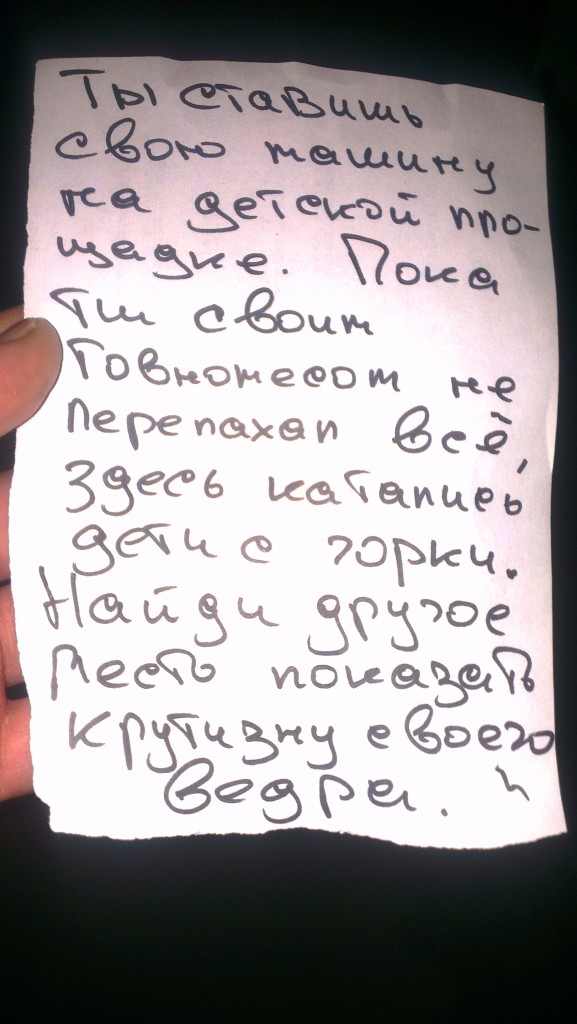 Ты ставишь
свою машину
на детской про-
щадке. Пока
Ты своим
Говномесом не
перепахал всё,
Здесь катались
дети с горки.
Найди другое
место показать
крутизну своего
ведра.